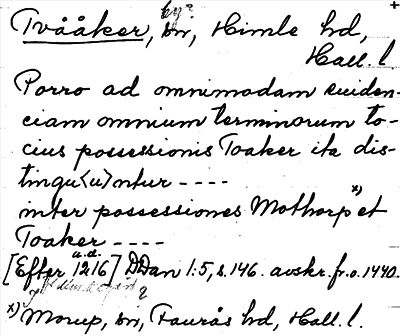 by?
Tvååker, sn, Himle hd,
Hall. l.
Porro ad omnimodam euiden-
ciam omnium terminorum to-
cius possessionis Toaker ita dis-
tingu<u>ntur ----
inter possessiones Mothorp x) et
Toaker ----
u.d.
[Efter 1216] DDan 1:5, s. 146. avskr. fr. o. 1440.
x) Morup, sn, Faurås hd, Hall. l.